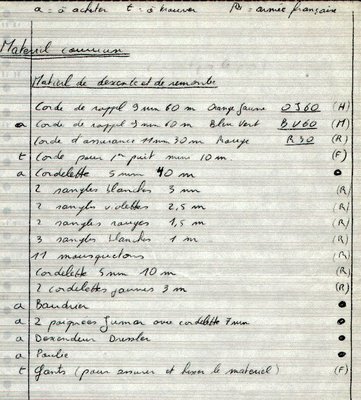 a = à acheter t = à trouver = armée française
Matériel commun
Matériel de descente et de remontée
Corde de rappel 9 mm 60 m Orange Jaune OJ60 (H)
a Corde de rappel 9 mm 60 m Bleu Vert BV60 (M)
Corde d'assurance 11 mm 30 m Rouge R30 (R)
t Corde pour 1er puit mini 10 m (F)
a Cordelette 5 mm 40 m
2 sangles blanches 3 m (R)
2 sangles violettes 2,5 m (R)
2 sangles rouges 1,5 m (R)
3 sangles blanches 1 m (R)
11 mousquetons (R)
Cordelette 5 mm 10 m (R)
2 cordelettes jaunes 3 m (R)
a Baudrier
a 2 poignées Jumar avec cordelette 7 mm
a Descendeur Dressler
a Poulie
t Gants (pour assurer et hisser le materiel) (F)